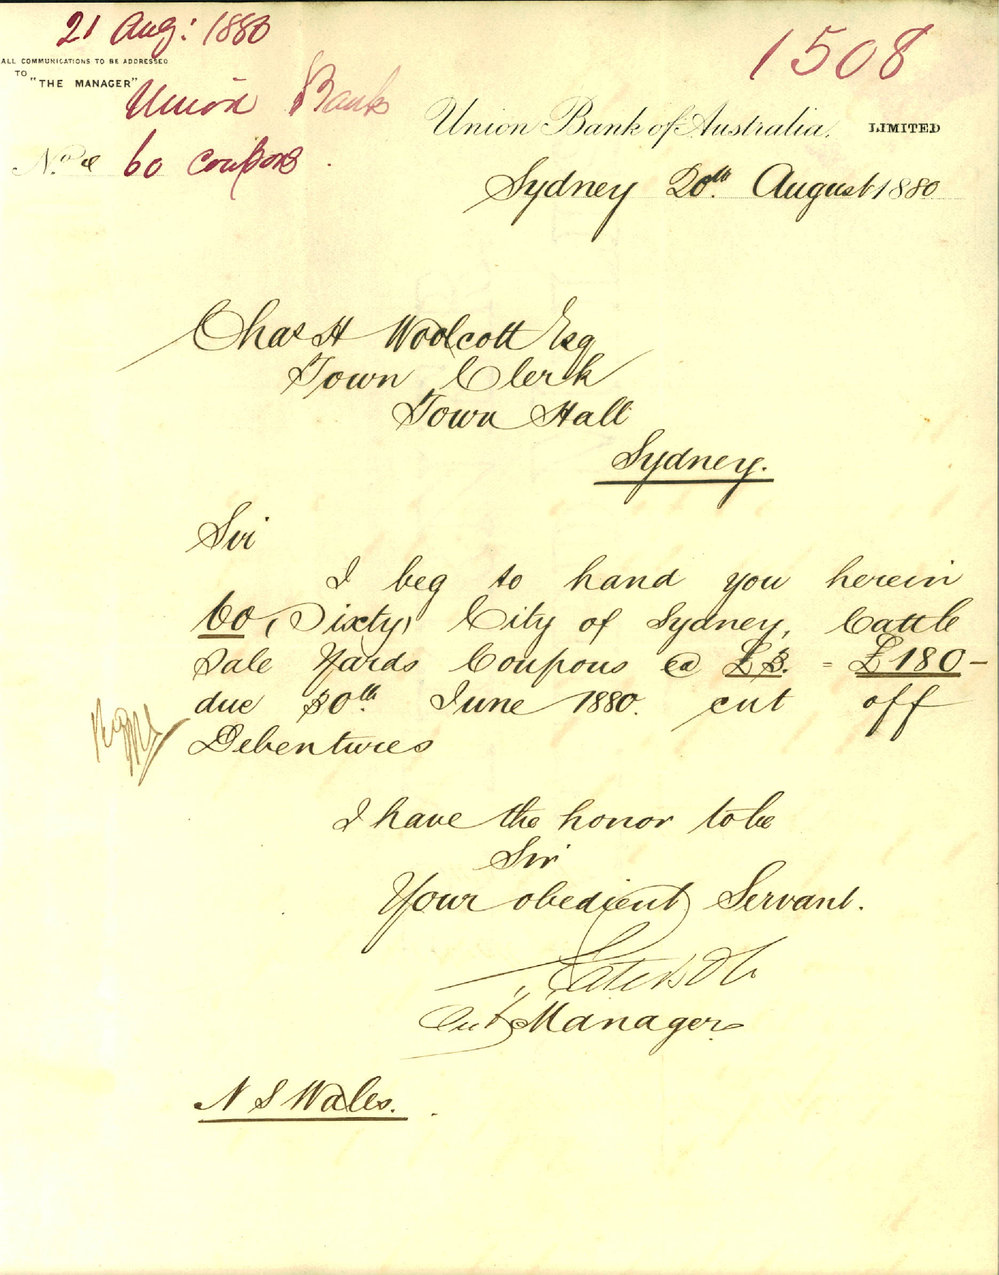 21 Aug: 1880
1508
ALL COMMUNICATIONS TO BE ADDRESSED
TO "THE MANAGER"
Union Bank
Union Bank of Australia, LIMITED
60 coupons
Sydney 20th August 1880
Chas H Woolcott Esq
Town Clerk
Town Hall
Sydney.
Sir
I beg to hand you herein
60 (Sixty) City of Sydney, Cattle
Sale Yards Coupons @ £3. = £180-
due 30th June 1880. cut off
Debentures
I have the honor to be
Sir
Your obedient Servant.
Manager
N S Wales.